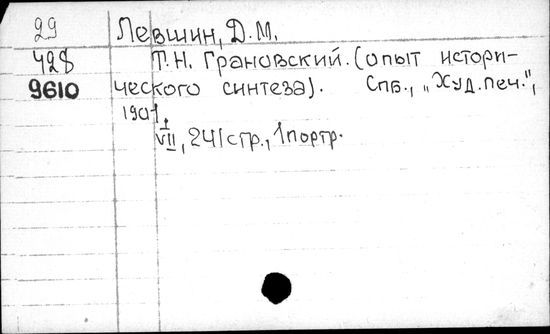 29 Левшин, Д.М.
428 Т.Н. Грановский. (опыт истори-
9610 ческого синтеза). Спб., „Худ. печ.",
1901.
VII, 241 стр., 1 портр.